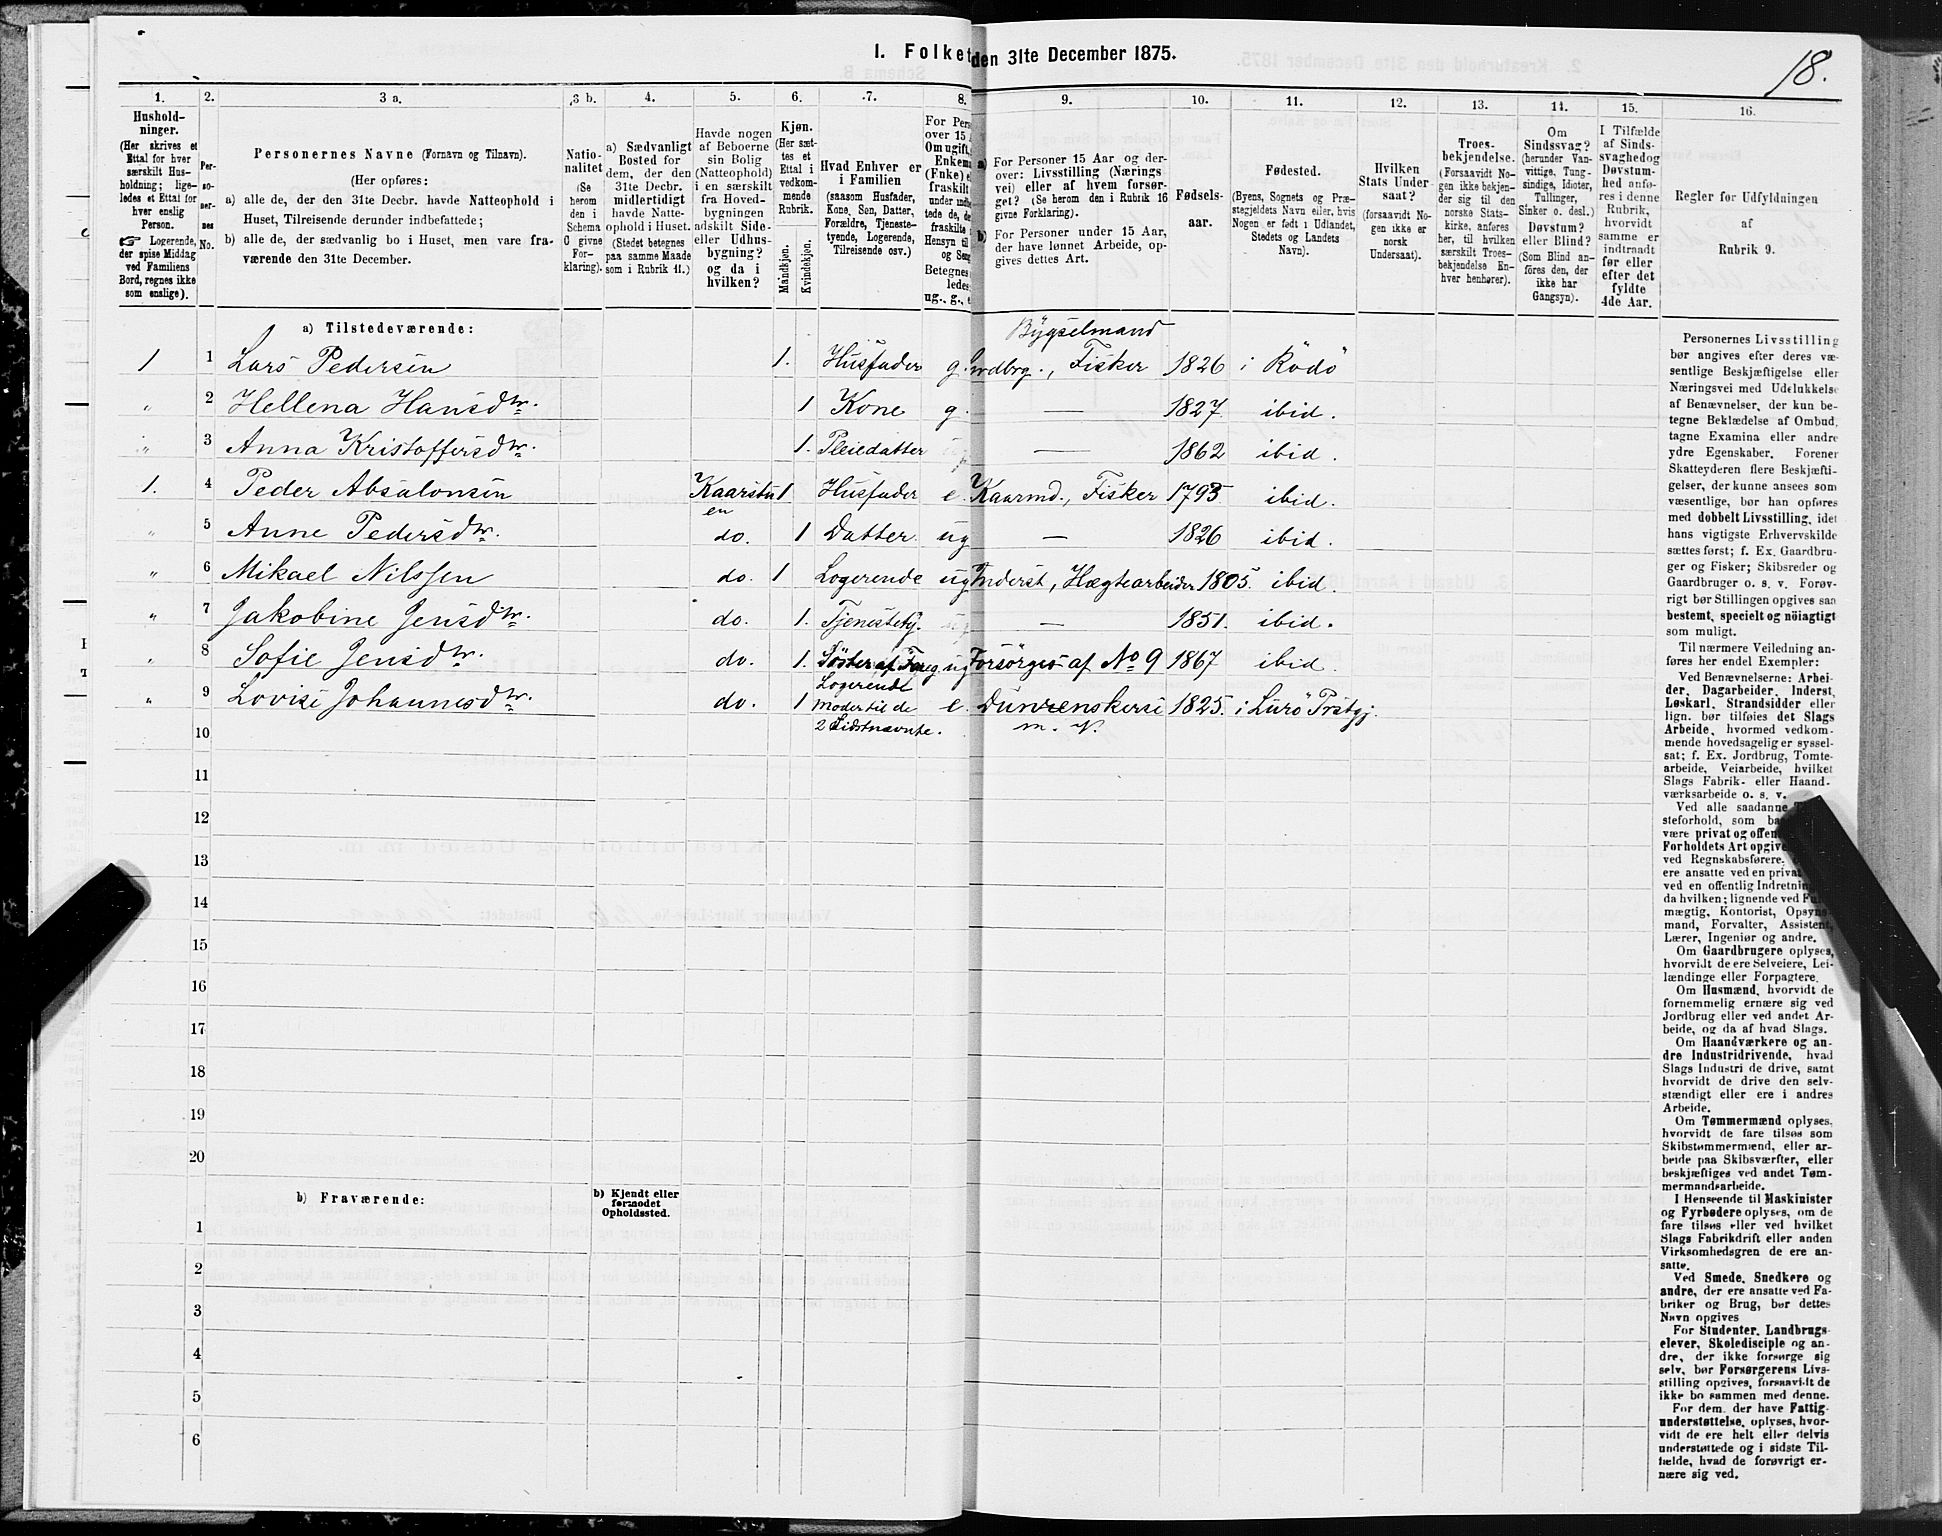 I. Folket
den 31te December 1875.
18.
1.
2.
3 a.
3 b.
4.
5.
6.
7.
8.
9.
10.
11.
12.
13.
14.
15.
16.
Hushold-
ninger.
(Her skrives et
Ettal for hver
særskilt Hus-
holdning; lige-
ledes et Ettal for
hver enslig
Person.
☞ Logerende,
der spise Middag
ved Familiens
Bord, regnes ikke
som enslige).
Per-
so-
ner-
nes
No.
Personernes Navne (Fornavn og Tilnavn).
(Her opføres:
a) alle de, der den 31te Decbr. havde Natteophold i
Huset, Tilreisende derunder indbefattede;
b) alle de, der sædvanlig bo i Huset, men vare fra-
værende den 31te December.
Natio-
nalitet
(Se
herom
den i
Schema
C givne
For-
klaring).
a) Sædvanligt
Bosted for
dem, der den
31te Decbr.
midlertidigt
havde Natte-
ophold i Huset.
(Stedet betegnes
paa samme Maade
som i Rubrik 11.)
Havde nogen
af Beboerne
sin Bolig
(Natteophold)
i en særskilt
fra Hoved-
bygningen
adskilt Side-
eller Udhus-
bygning?
og da i
hvilken?
Kjøn.
(Her sæt-
tes et
Ettal i
vedkom-
mende
Rubrik.
Mandkjøn.
Kvindekjøn.
Hvad Enhver er
i Familien
(saasom Husfader,
Kone, Søn, Datter,
Forældre, Tjeneste-
tyende, Logerende,
Tilreisende osv.)
For Pers
over 15
Om ugift,
Enkema
(Enke) e
fraskilt
under indbe
tede de, de
fraskilte
Hensyn til
og Sen
Betegnes
ledes
ug., g., e
a)
For Personer 15 Aar og der-
over: Livsstilling (Nærings
vei) eller af hvem forsør-
get? (Se herom den i Rubrik 16
givne Forklaring).
b) For Personer under 15 Aar,
der have lønnet Arbeide, op-
gives dettes Art.
Fødsels-
aar.
Fødested.
(Byens, Sognets og Præ-
stegjeldets Navn eller, hvis
Nogen er født i Udlandet,
Stedets og Landets
Navn).
Hvilken
Stats Under-
saat?
(forsaavidt No-
gen ikke er
norsk
Undersaat).
Troes-
bekjendelse.
(Forsaavidt No-
gen ikke bekjen-
der sig til den
norske Stats-
kirke, anføres
her, til hvilken
særskilt Troes-
bekjendelse En-
hver henhører).
Om
Sindssvag?
(herunder Van-
vittige, Tung-
sindige, Idioter,
Tullinger,
Sinker o. desl.)
Døvstum?
eller Blind?
(Som Blind an-
føres den, der
ikke har
Gangsyn).
I Tilfælde
af Sinds-
svaghedog
Døvstum-
hed anfø-
res i denne
Rubrik,
hvorvidt
samme er
indtraadt
før eller
efter det
fyldte
4de Aar.
Regler for Udfyldningen
af
Rubrik 9.
a) Tilstedeværende:
Bygselmand
1 1 Lars Pedersen 1. Husfader g. Jordbrg., Fisker 1826 i Rödö
" 2 Hellena Hansdtr. 1 Kone g. — 1827 ibid.
" 3 Anna Kristoffersdtr. 1. Pleiedatter ug — 1862 ibid.
1. 4 Peder Absalonsen Kaarstu 1 Husfader e. Kaarmd., Fisker 1795 ibid.
en
" 5 Anne Pedersdtr. do. 1 Datter ug — 1826 ibid.
" 6 Mikael Nilssen do. 1 Logerende ug Inderst, Hægtearbeider 1805. ibid.
" 7 Jakobine Jensdtr. do. 1. Tjenestety. ug — 1851. ibid.
" 8 Sofie Jensdtr. do. 1. Söster af Foreg ug Forsörges af No 9 1867 ibid.
" 9 Lovise Johannesdtr. do. 1 Logerende e. 1825. i Lurö Prstgj.
Moder til de
2 Sidstnævnte. m. V.
10
11
12
13
14
15
16
17
18
19
20
b) Fraværende:
b) Kjendt eller
formodet
Opholdssted.
1
2
3
4
5
6
Personernes Livsstilling
bør angives efter deres væ-
sentlige Beskjæftigelse eller
Næringsvei med Udelukkelse
af Benævnelser, der kun be-
tegne Beklædelse af Ombud,
tagne Examina eller andre
ydre Egenskaber. Forener
Skatteyderen flere Beskjæfti-
gelser, der kunne ansees som
væsentlige, bør han opføres
med dobbelt Livsstilling, idet
hans vigtigste Erhvervskilde
sættes først; f. Ex. Gaardbru-
ger og Fisker; Skibsreder og
Gaardbruger o. s. v. Forøv-
rigt bør Stillingen opgives saa
bestemt, specielt og nöiagtigt
som muligt.
Til nærmere Veiledning an-
føres her endel Exempler:
Ved Benævnelserne: Arbei-
der, Dagarbeider, Inderst,
Løskarl, Strandsidder eller
lign. bør tilføies det Slags
Arbeide, hvormed vedkom-
mende hovedsagelig er syssel-
sat; f. Ex. Jordbrug, Tomte-
arbeide, Veiarbeide, hvilket
Slags Fabrik- eller Haand-
værksarbeide o. s. v.
Ved alle saadanne
steforhold, som
være privat og offen
Forholdets Art opgive
ved Regnskabsførere,
ere ansatte ved en privat
ved en offentlig Indretnin
da hvilken; lignende ved Ful
mægtig, Kontorist, Opsyns-
mand, Forvalter, Assistent,
Lærer, Ingeniør og andre.
Om Gaardbrugere oplyses,
hvorvidt de ere Selveiere, Lei-
lændinge eller Forpagtere.
Om Husmænd, hvorvidt de
fornemmelig ernære sig ved
Jordbrug eller ved andet Ar-
beide, og da af hvad Slags.
Om Haandværkere og an-
dre Industridrivende, hvad
Slags Industri de drive, samt
hvorvidt de drive den selv-
stændigt eller ere i andres
Arbeide.
Om Tømmermænd oplyses,
hvorvidt de fare tilsøs som
Skibstømmermænd, eller ar-
beide paa Skibsværfter, eller
beskjæftiges ved andet Tøm-
mermandsarbeide.
I Henseende til Maskinister
og Fyrbødere oplyses, om de
fare tilsøs eller ved hvilket
Slags Fabrikdrift eller anden
Virksomhedsgren de ere an-
satte.
Ved Smede, Snedkere og
andre, der ere ansatte ved Fa-
briker og Brug, bør dettes
Navn opgives
For Studenter, Landbrugs-
elever, Skoledisciple og an-
dre, der ikke forsørge sig
selv, bør Forsørgerens Livs-
stilling opgives, forsaavidt de
ikke bo sammen med denne.
For dem, der have Fattig-
understøttelse, oplyses, hvor-
vidt de ere helt eller delvis
understøttede og i sidste Til-
fælde, hvad de forøvrigt er-
nære sig ved.